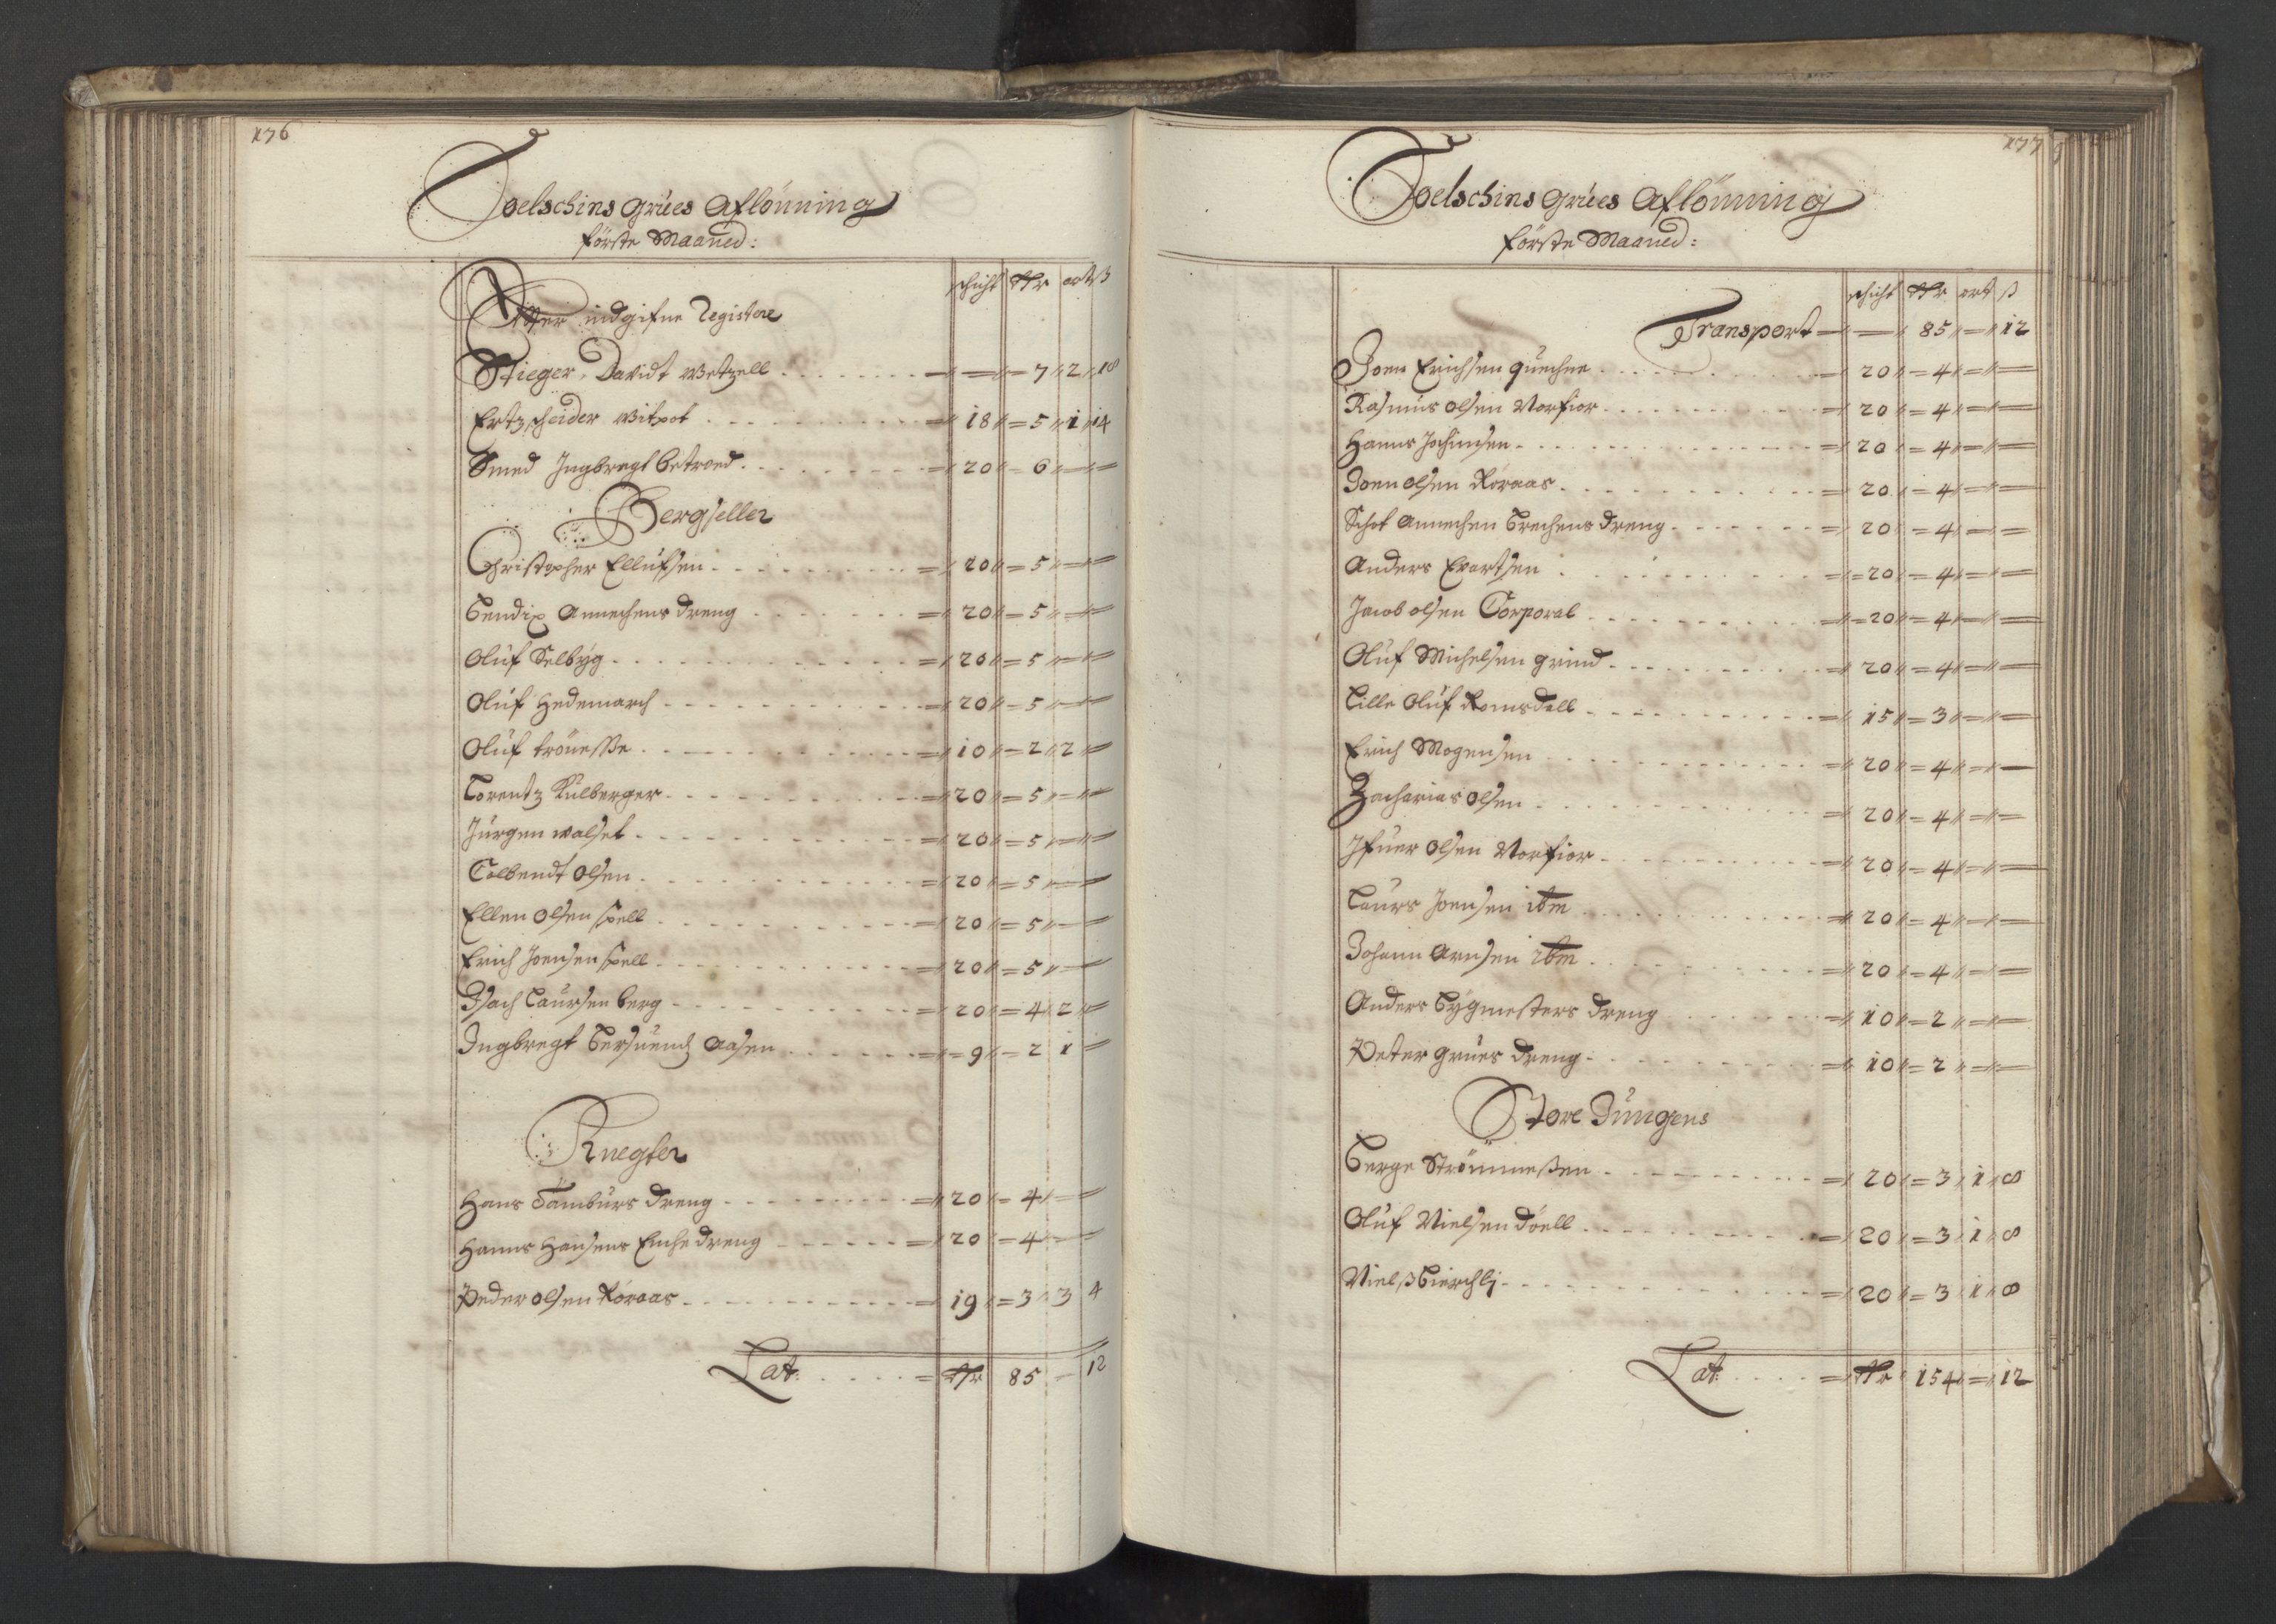 176
Soelschins Grües Aflönning
förste Maaned:
schicht Rdr ort ß
Effter indgifne Registere
Stieger, Davidt Wetzell — 7 2 18
Ertzscheider Witpot 18 5 1 14
Smed Ingbregt 20 6
Bergseller
Christopher Ellufsen 20 5
Bendix Annechens dreng 20 5
Oluf Selbÿg 20 5
Oluf Hedemarch 20 5
Oluf 10 2 2
Lorentz Kulberger 20 5
Jürgen Walset 20 5
Colbendt Olsen 20 5
Ellen Olsen Spell 20 5
Erich Joensen Spell 20 5
Isach Laursen berg 20 4 2
Ingbregt Aasen 9 2 1
Knegter
Hans Tambürs dreng 20 4
Hanns Hansens Enche dreng 20 4
Peder Olsen Röraas 19 3 3 4
Lat: Rdr 85 — 12
177
Soelschins Grües Aflönning
förste Maaned:
schicht Rdr ort ß
Transport — 85 — 12
Joen Erichsen quechne 20 4
Rasmus Olsen Morfior 20 4
Hanns Jochimsen 20 4
Joen Olsen Röraas 20 4
Schot Annechen Brechens dreng 20 4
Anders Evartsen 20 4
Jacob Olsen Corporal 20 4
Oluf Michelsen grind 20 4
Lille Oluf Romsdall 15 3
Erich Mogensen 20 4
Zacharias Olsen 20 4
Ifuer Olsen Morfior 20 4
Laurs Joensen ibm 20 4
Johann Arnsen ibm 20 4
Anders Bÿgmesters dreng 10 2
Peter Grues dreng 10 2
Store Jungens
Berge Strömmeßen 20 3 1 8
Oluf Nielsen döell 20 3 1 8
Nielß Bierchlj 20 3 1 8
Lat: Rdr 154 — 12